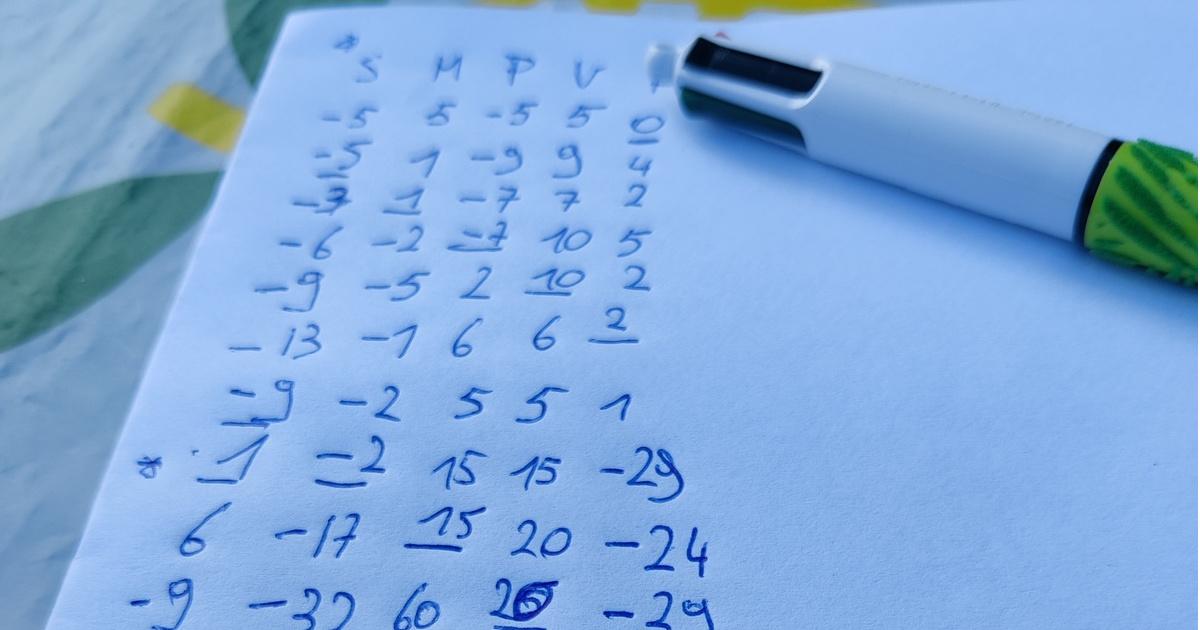 * S M P V
-5 5 -5 5 0
-5 1 -9 9 4
-3 1 -7 7 2
-6 -2 -7 10 5
-9 -5 2 10 2
-13 -1 6 6 2
-9 -2 5 5 1
* 1 -2 15 15 -29
6 -17 15 20 -24
-9 -32 60 20 -29